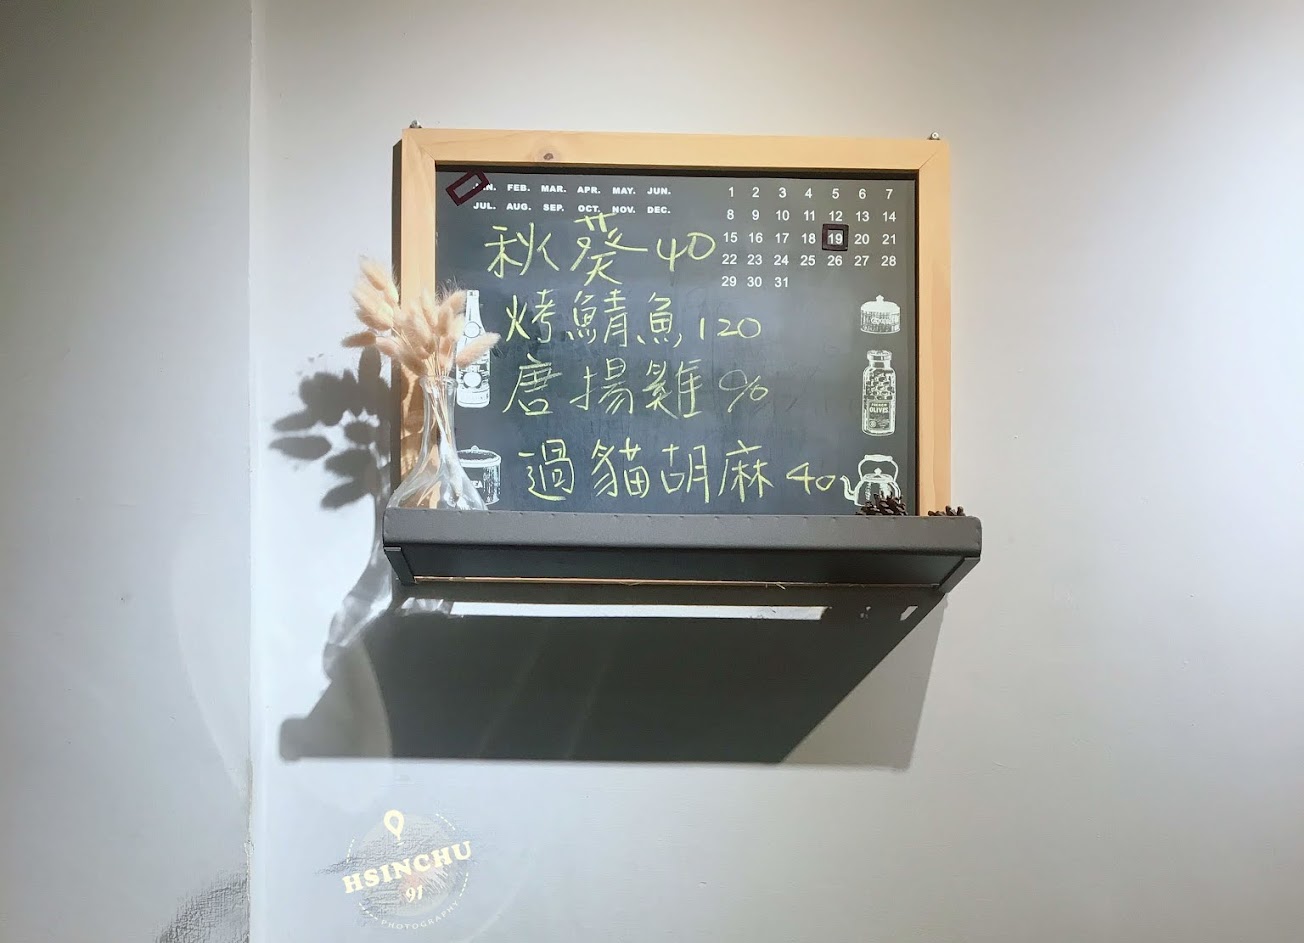 FEB. MAR. APR. MAY. JUN.
JUL. AUG. SEP. OCT. NOV. DEC.
1 2 3 4 5 6 7
8 9 10 11 12 13 14
15 16 17 18 19 20 21
22 23 24 25 26 27 28
29 30 31
秋葵40
烤鯖魚120
唐揚雞
過貓胡麻40
OLIVES
HSINCHU
91
PHOTOGRAPHY